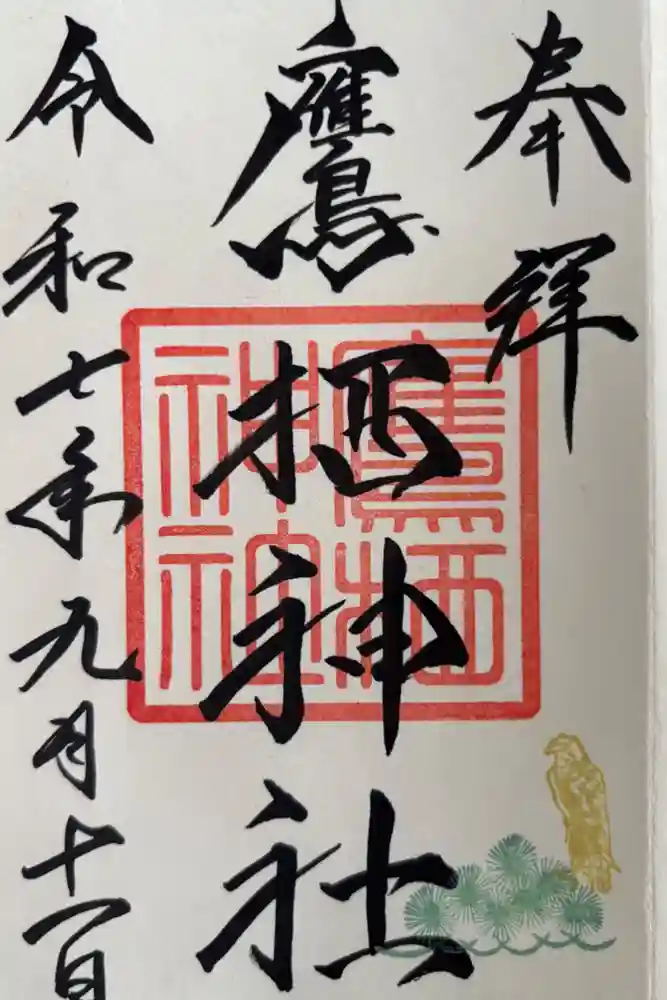 奉拝
鷹栖神社
令和七年九月十一日
鷹栖
神社